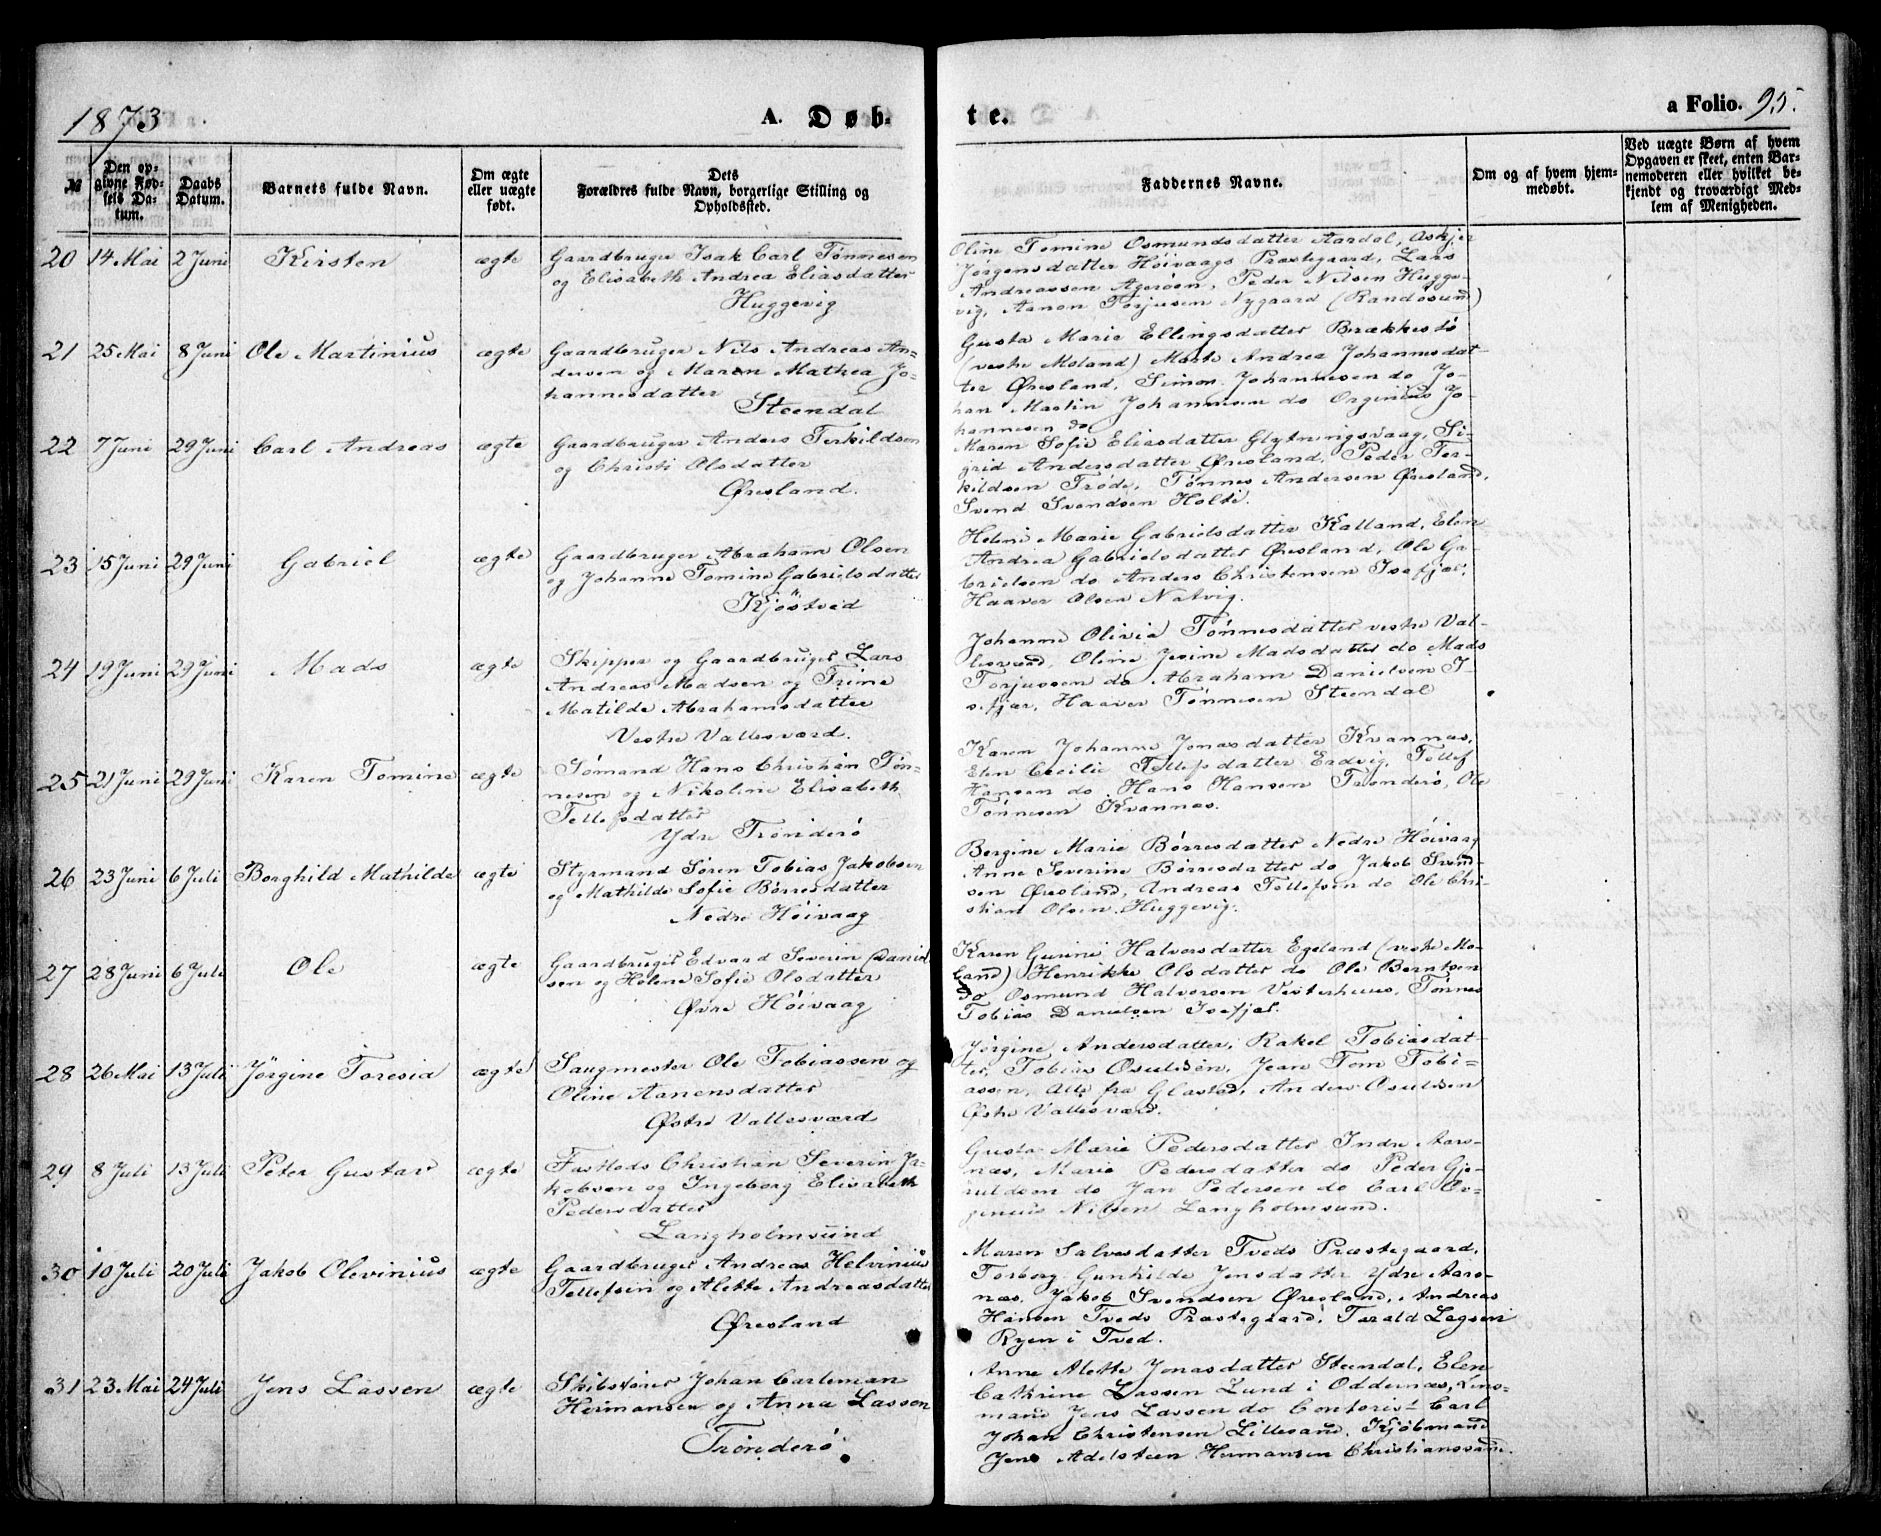 1873 A. Døb- te. a Folio. 95.
№
Den opgivne Fødsels Datum.
Daabs Datum.
Barnets fulde Navn.
Om ægte eller uægte født.
Dets Forældres fulde Navn, borgerlige Stilling og Opholdssted.
Faddernes Navne.
Om og af hvem hjemmedøbt.
Ved uægte Børn af hvem Opgaven er skeet, enten Barnemoderen eller hvilket bekjendt og troværdigt Medlem af Menigheden.
20 14 Mai 2 Juni Kirsten ægte
Gaardbruger Isak Carl Tønnesen
og Elisabeth Andrea Eliasdatter
Huggevig
Oline Tomine Osmundsdatter Aardal, Askjer
Jørgensdatter Höivaags Præstegaard, Lars
Andreassen Agerøen, Peder Nilsen Hugge-
vig, Aanon Torjusen Nygaard (Randøsund)
21 25 Mai 8 Juni Ole Martinius ægte
Gaardbruger Nils Andreas An-
dersen og Maren Mathea Jo-
hannesdatter
Steendal
Gusta Marie Ellingsdatter Brækkestö
(vestre Moland) Marte Andrea Johannesdat-
ter Øresland, Simon Johannesen do Jo-
han Martin Johannesen do Orginius Jo-
hannesen do
22 7 Juni 29 Juni Carl Andreas ægte
Gaardbruger Anders Terkildsen
og Christi Olsdatter
Øresland.
Maren Sofie Eliasdatter Glytningsvaag, Si-
grid Andersdatter Øresland, Peder Ter-
kildsen Trøde, Tønnes Andersen Øresland,
Svend Svendsen Holte.
23 15 Juni 29 Juni Gabriel ægte
Gaardbruger Abraham Olsen
og Johanne Tomine Gabrielsdatter
Kjöstved
Helene Marie Gabrielsdatter Kalland, Elen
Andrea Gabrielsdatter Øresland, Ole Ga-
brielsen do Anders Christensen Isefjær,
Haaver Olsen Natvig.
24 19 Juni 29 Juni Mads ægte
Skipper og Gaardbruger Lars
Andreas Madsen og Trine
Matilde Abrahamsdatter
Vestre Vallesværd.
Johanne Olivia Tønnesdatter vestre Val-
lesværd, Oline Jesine Madsdatter do Mads
Torjussen do Abraham Danielsen I-
sefjær, Haaver Tønnesen Steendal
25 21 Juni 29 Juni Karen Tomine ægte
Sømand Hans Christian Tøn-
nesen og Nikoline Elisabeth
Tellefsdatter
Ydre Trönderö
Karen Johanne Jonasdatter Kvannes,
Elen Cecilie Tellefsdatter Erdvig, Tellef
Hansen do Hans Hansen Trønderö, Ole
Tønnesen Kvannes.
26 23 Juni 6 Juli Borghild Mathilde ægte
Styrmand Sören Tobias Jakobsen
og Mathilde Sofie Børresdatter
Nedre Höivaag
Bergine Marie Börresdatter Nedre Höivaag
Anne Severine Börresdatter do Jakob Svend-
sen Øresland, Andreas Tellefsen do Ole Chri-
stian Olsen Huggevig.
27 28 Juni 6 Juli Ole ægte
Gaardbruger Edvard Severin Daniel-
sen og Helene Sofie Olsdatter
Øvre Höivaag
Karen Gurine Halvorsdatter Egeland (vestre Mo-
land) Henrikke Olsdatter do Ole Berntsen
do Osmund Halvorsen Vesterhuus, Tønnes
Tobias Danielsen Isefjær.
28 26 Mai 13 Juli Jörgine Toresia ægte
Saugmester Ole Tobiassen og
Oline Aanensdatter
Østre Vallesværd
Jörgine Andersdatter, Rakel Tobiasdat-
ter, Tobias Osulsen, Jean Tom Tobi-
assen, alle fra Glastad, Anders Osulsen
Østre Vallesværd.
29 8 Juli 13 Juli Peter Gustav ægte
Christian Severin Ja-
kobsen og Ingeborg Elisabeth
Pedersdatter
Langholmsund
Gusta Marie Pedersdatter Indre Aars-
næs, Marie Pedersdatter do Peder Gje-
ruldsen do Jan Pedersen do Carl Or-
ginius Nilsen Langholmsund.
30 10 Juli 20 Juli Jakob Olevinius ægte
Gaardbruger Andreas Helvinius
Tellefsen og Alette Andreasdatter
Øresland
Maren Salvesdatter Tveds Præstegaard,
Torborg Gunhilde Jensdatter Ydre Aars-
næs, Jakob Svendsen Øresland, Andreas
Hansen Tveds Præstegaard, Tarald
Ryen i Tved.
31 23 Mai 24 Juli Jens Lassen ægte
Skibsfører Johan Carleman
Hermansen og Anna Lassen
Trønderö.
Anne Alette Jonasdatter Steendal, Elen
Cathrine Lassen Lund i Oddernæs, Lens-
mand Jens Lassen do Contorist Carl
Johan Christensen Lillesand, Kjöbmand
Jens Adelsteen Hermansen Christianssand.